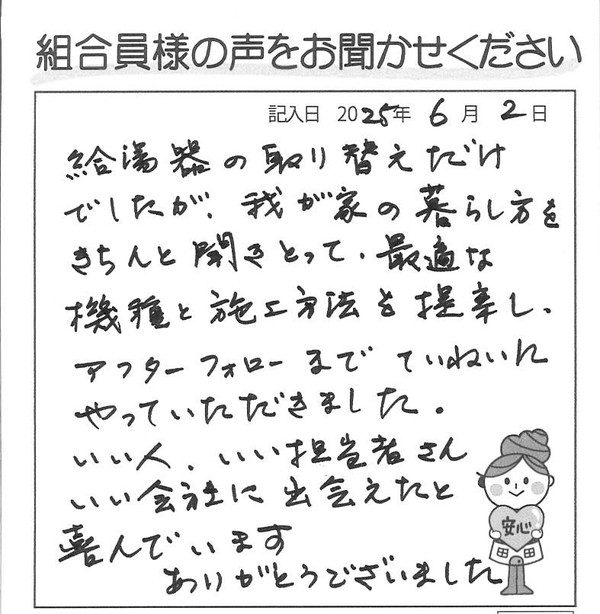 組合員様の声をお聞かせください
記入日 2025年 6月 2日
給湯器の取り替えだけ
でしたが、我が家の暮らし方を
きちんと聞きとって、最適な
機種と施工方法を提案し、
アフターフォローまで ていねいに
やっていただきました。
いい人、いい担当者さん
いい会社に出会えたと
喜んでいます
ありがとうございました
安心